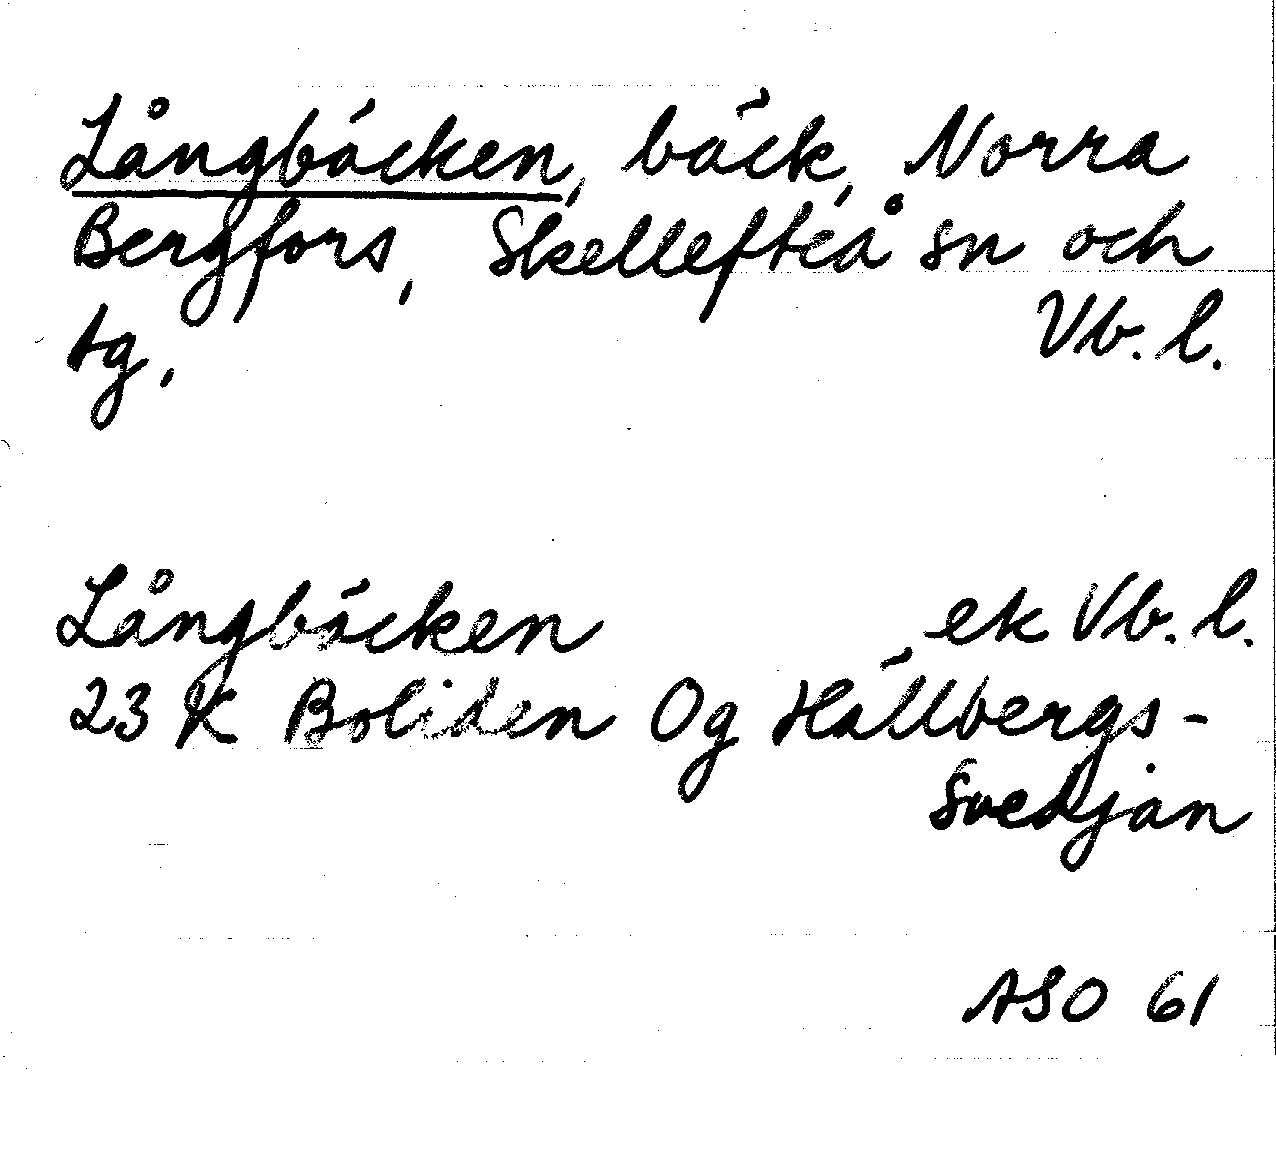 Långbäcken, bäck, Norra
Bergfors, Skellefteå sn och
tg, Vb. l.
Långbäcken ek Vb. l.
23 K Boliden Og Hällbergs-
Svedjan
ASO 61